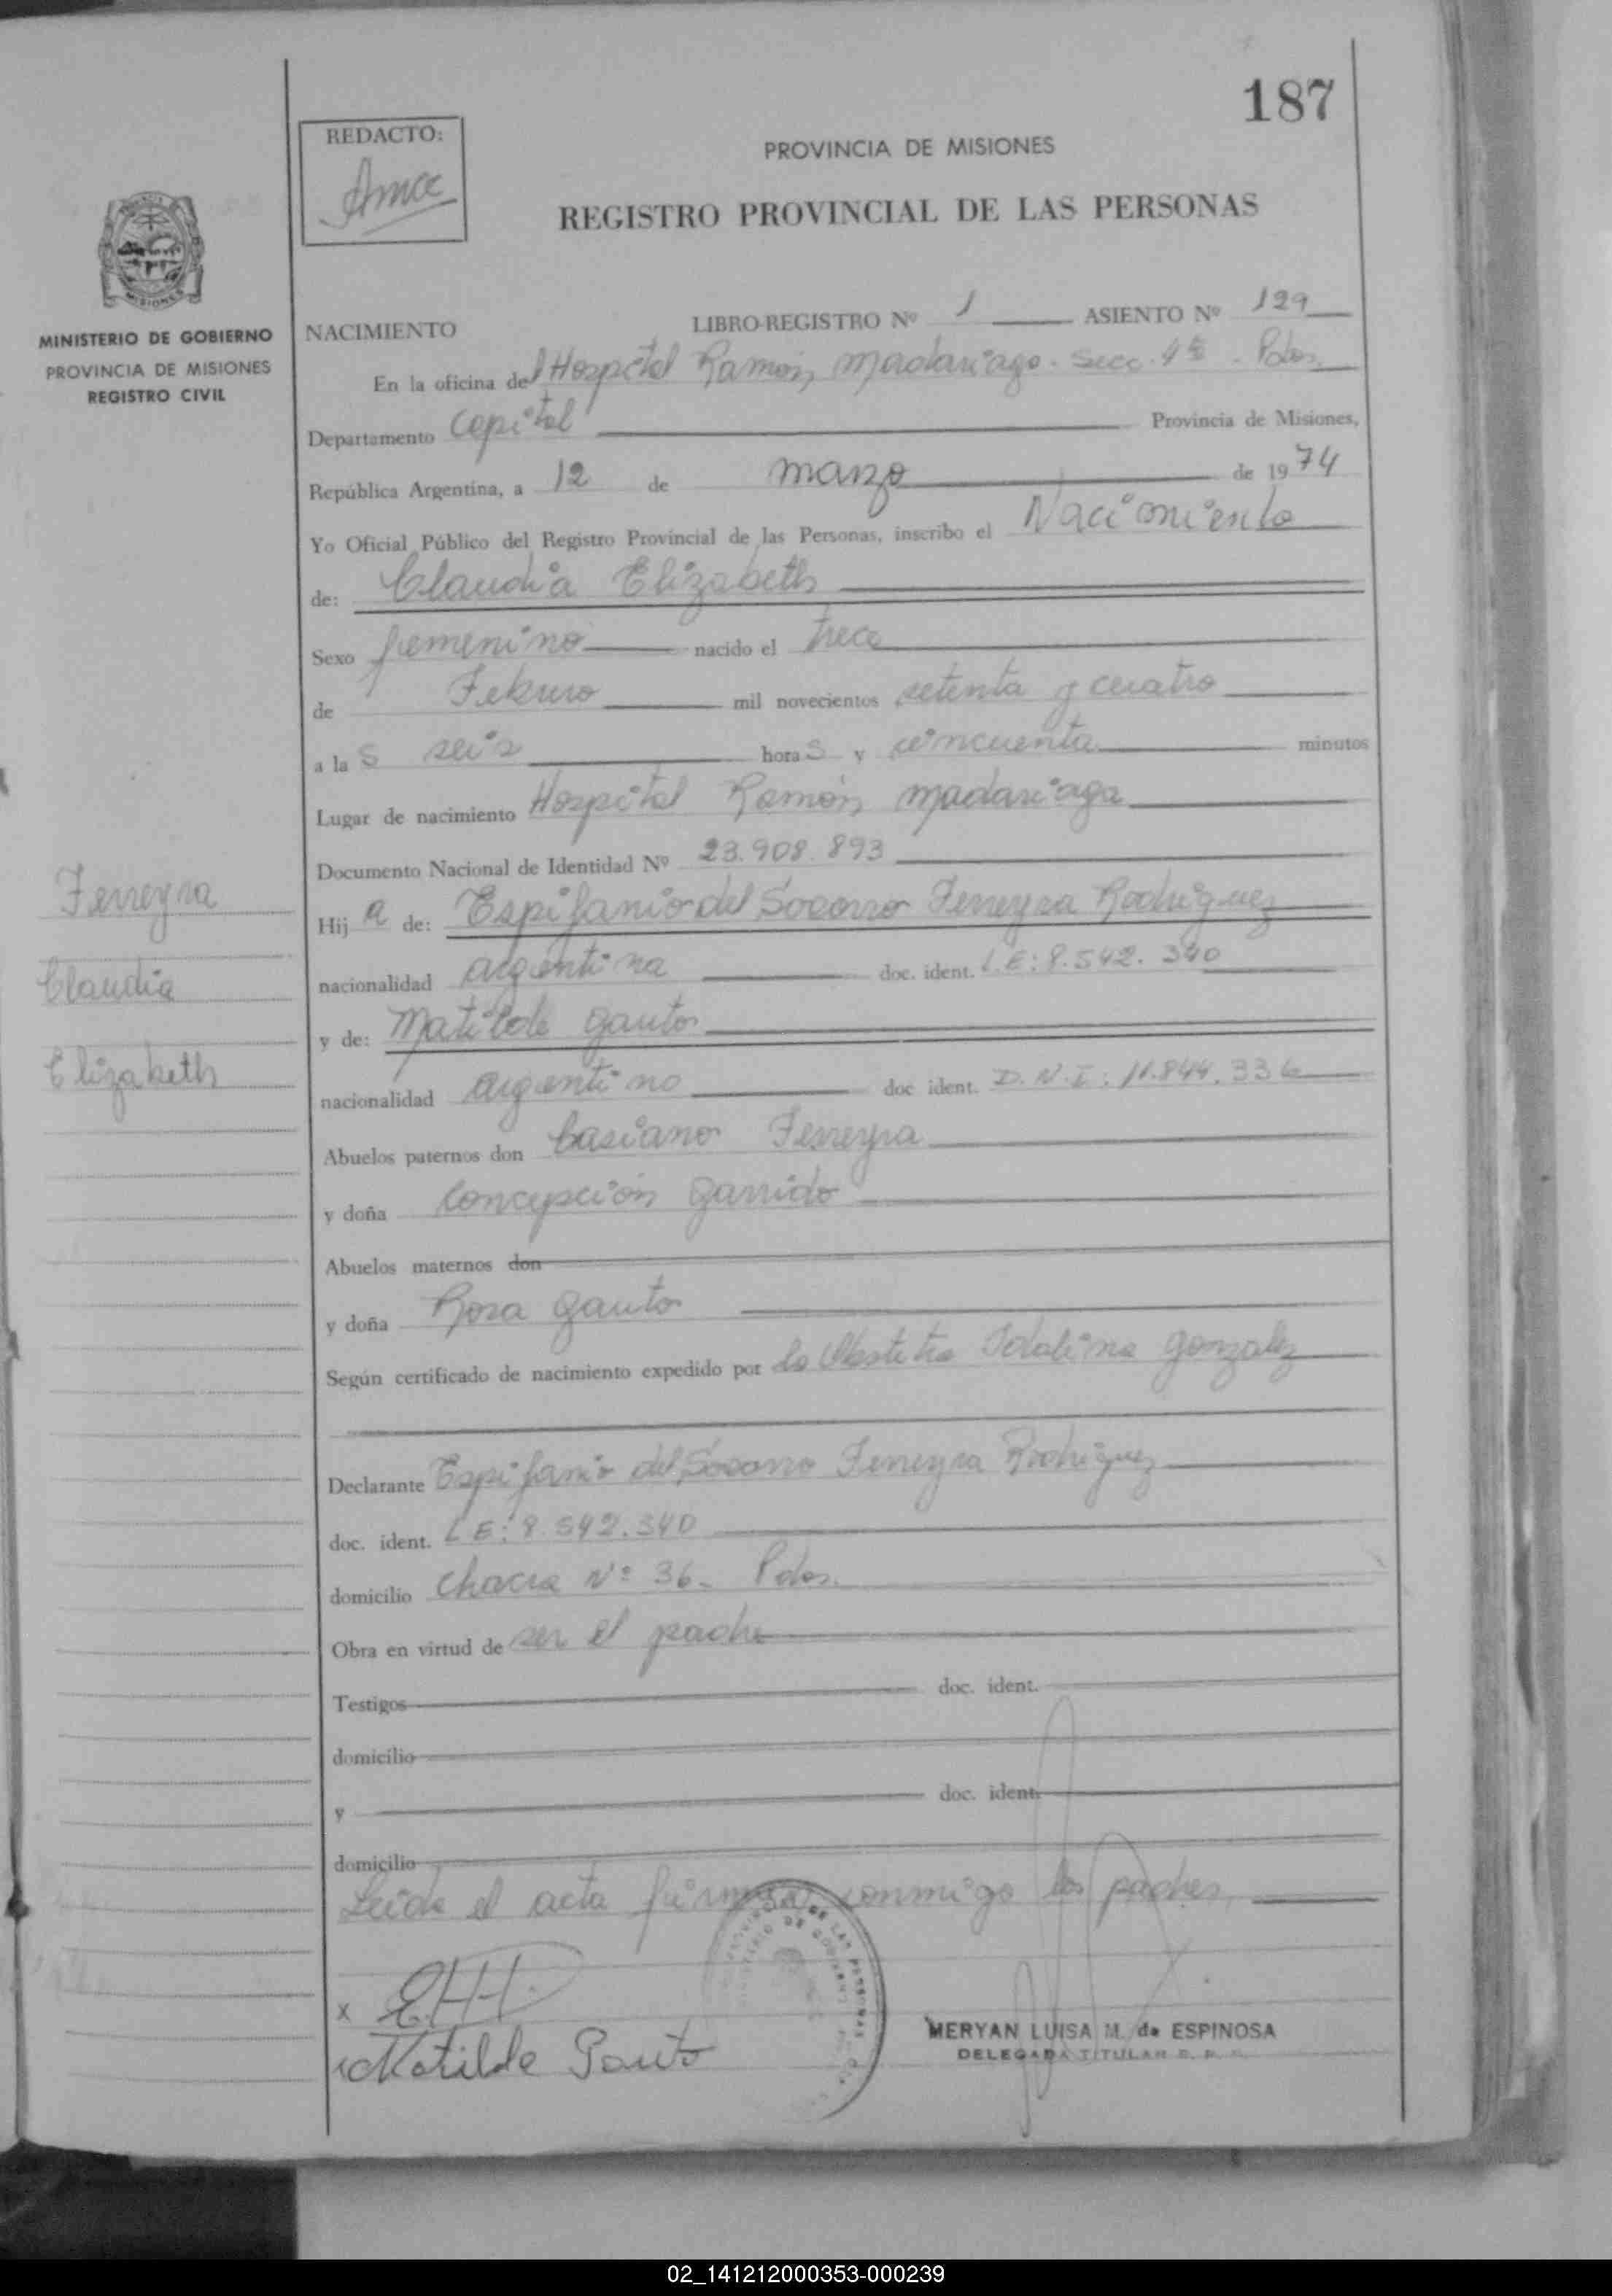 187
REDACTO:
PROVINCIA DE MISIONES
REGISTRO PROVINCIAL DE LAS PERSONAS
MISIONES
MINISTERIO DE GOBIERNO
PROVINCIA DE MISIONES
REGISTRO CIVIL
NACIMIENTO LIBRO-REGISTRO Nº 1 ASIENTO Nº 129
En la oficina del Hospital Ramón Madariaga. Secc. 4ta - Pdas.
Departamento Capital Provincia de Misiones,
República Argentina, a 12 de marzo de 1974
Yo Oficial Público del Registro Provincial de las Personas, inscribo el Nacimiento
de: Claudia Elizabeth
Sexo femenino nacido el trece
de Febrero mil novecientos setenta y cuatro
a las seis horas y cincuenta minutos
Lugar de nacimiento Hospital Ramón Madariaga
Documento Nacional de Identidad Nº 23.908.893
Ferreyra
Claudia
Elizabeth
Hija de: Espifanio del Socorro Ferreyra Rodriguez
nacionalidad argentina doc. ident. L.E: 8.542.340
y de: Matilde Gauto
nacionalidad argentino doc ident. D.N.I: 11.844.336
Abuelos paternos don Casiano Ferreyra
y doña Concepción Garrido
Abuelos maternos don
y doña Rosa Gauto
Según certificado de nacimiento expedido por la Obstetra Idalina Gonzalez
Declarante Espifanio del Socorro Ferreyra Rodriguez
doc. ident. L E: 8.542.340
domicilio Chacra Nº 36- Pdas.
Obra en virtud de ser el padre
Testigos doc. ident.
domicilio
y doc. ident.
domicilio
Leida el acta firman conmigo los padres,
x
Matilde Gauto
MERYAN LUISA M. de ESPINOSA
DELEGADA TITULAR
02_141212000353-000239